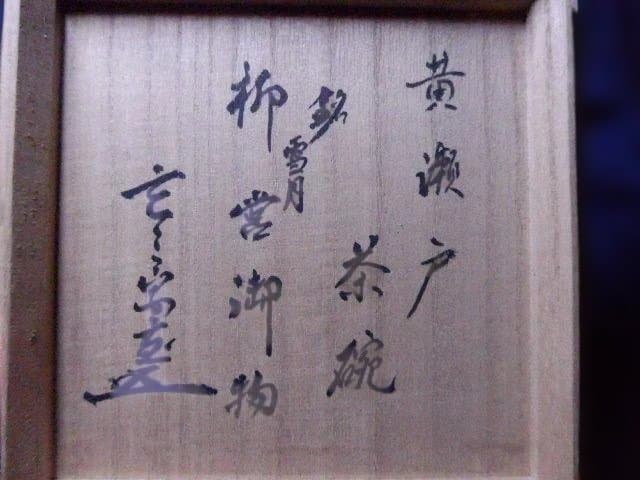 黄瀬戸
茶碗
銘
雪月
柳営御物